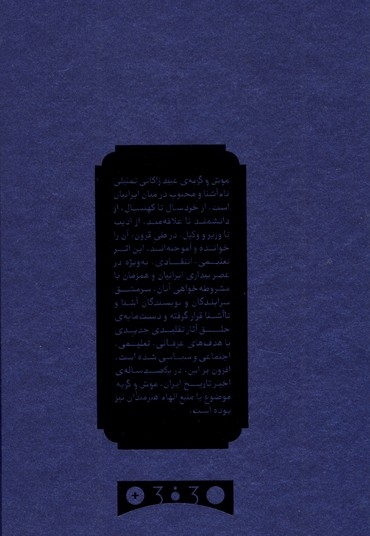 موش و گربه‌ی عبید زاکانی تمثیلی
نام‌آشنا و محبوب در میان ایرانیان
است. از خردسال تا کهنسال، از
دانشمند تا علاقه‌مند، از ادیب
تا وزیر و وکیل، در طی قرون، آن را
خوانده و آموخته‌اند. این اثر
تعلیمی ـ انتقادی، به‌ویژه در
عصر بیداری ایرانیان و همزمان با
مشروطه‌خواهی آنان، سرمشق
سرایندگان و نویسندگان آشنا و
ناآشنا قرار گرفته و دست‌مایه‌ی
خلق آثار تقلیدی جدیدی
با هدف‌های عرفانی، تعلیمی،
اجتماعی و سیاسی شده است.
افزون بر این، در یکصد ساله‌ی
اخیر تاریخ ایران، موش و گربه
موضوع یا منبع الهام هنرمندان نیز
بوده است.